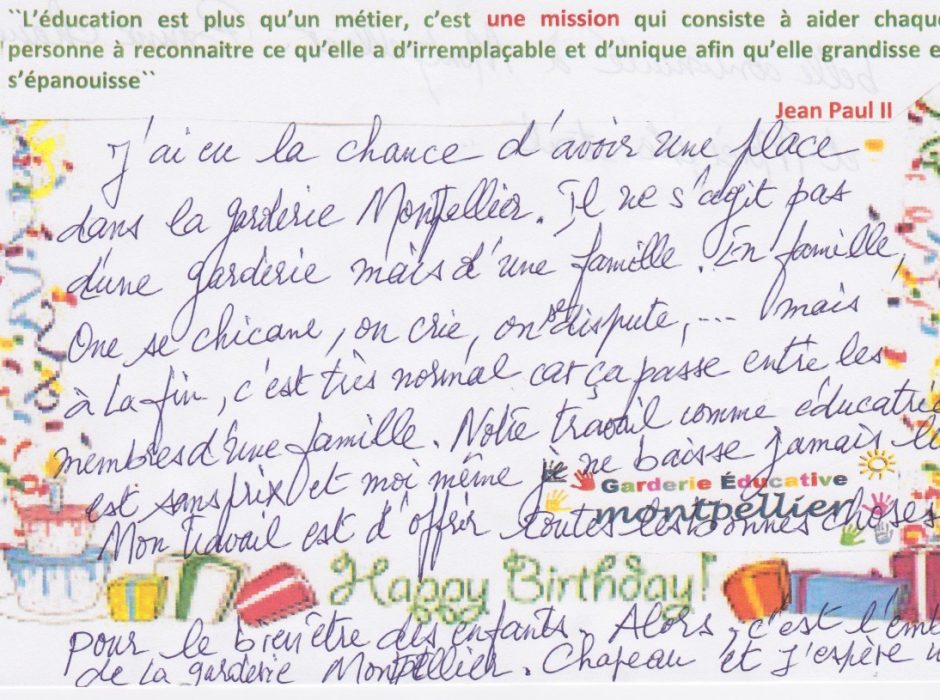 ``L'éducation est plus qu'un métier, c'est une mission qui consiste à aider chaque
personne à reconnaitre ce qu'elle a d'irremplaçable et d'unique afin qu'elle grandisse e
s'épanouisse``
Jean Paul II
J'ai eu la chance d'avoir une place
dans la garderie Montpellier. Il ne s'agit pas
d'une garderie mais d'une famille. En famille,
One se chicane, on crie, on se dispute, ... mais
à la fin, c'est très normal car ça passe entre les
membres d'une famille. Notre travail comme éducatric
est sans prix et moi même je ne baisse jamais le
Garderie Éducative
montpellier
Mon travail est d'offrir toutes les bonnes choses
Happy Birthday!
pour le bien être des enfants. Alors, c'est l'emb
de la garderie Montpellier. Chapeau et j'espère u